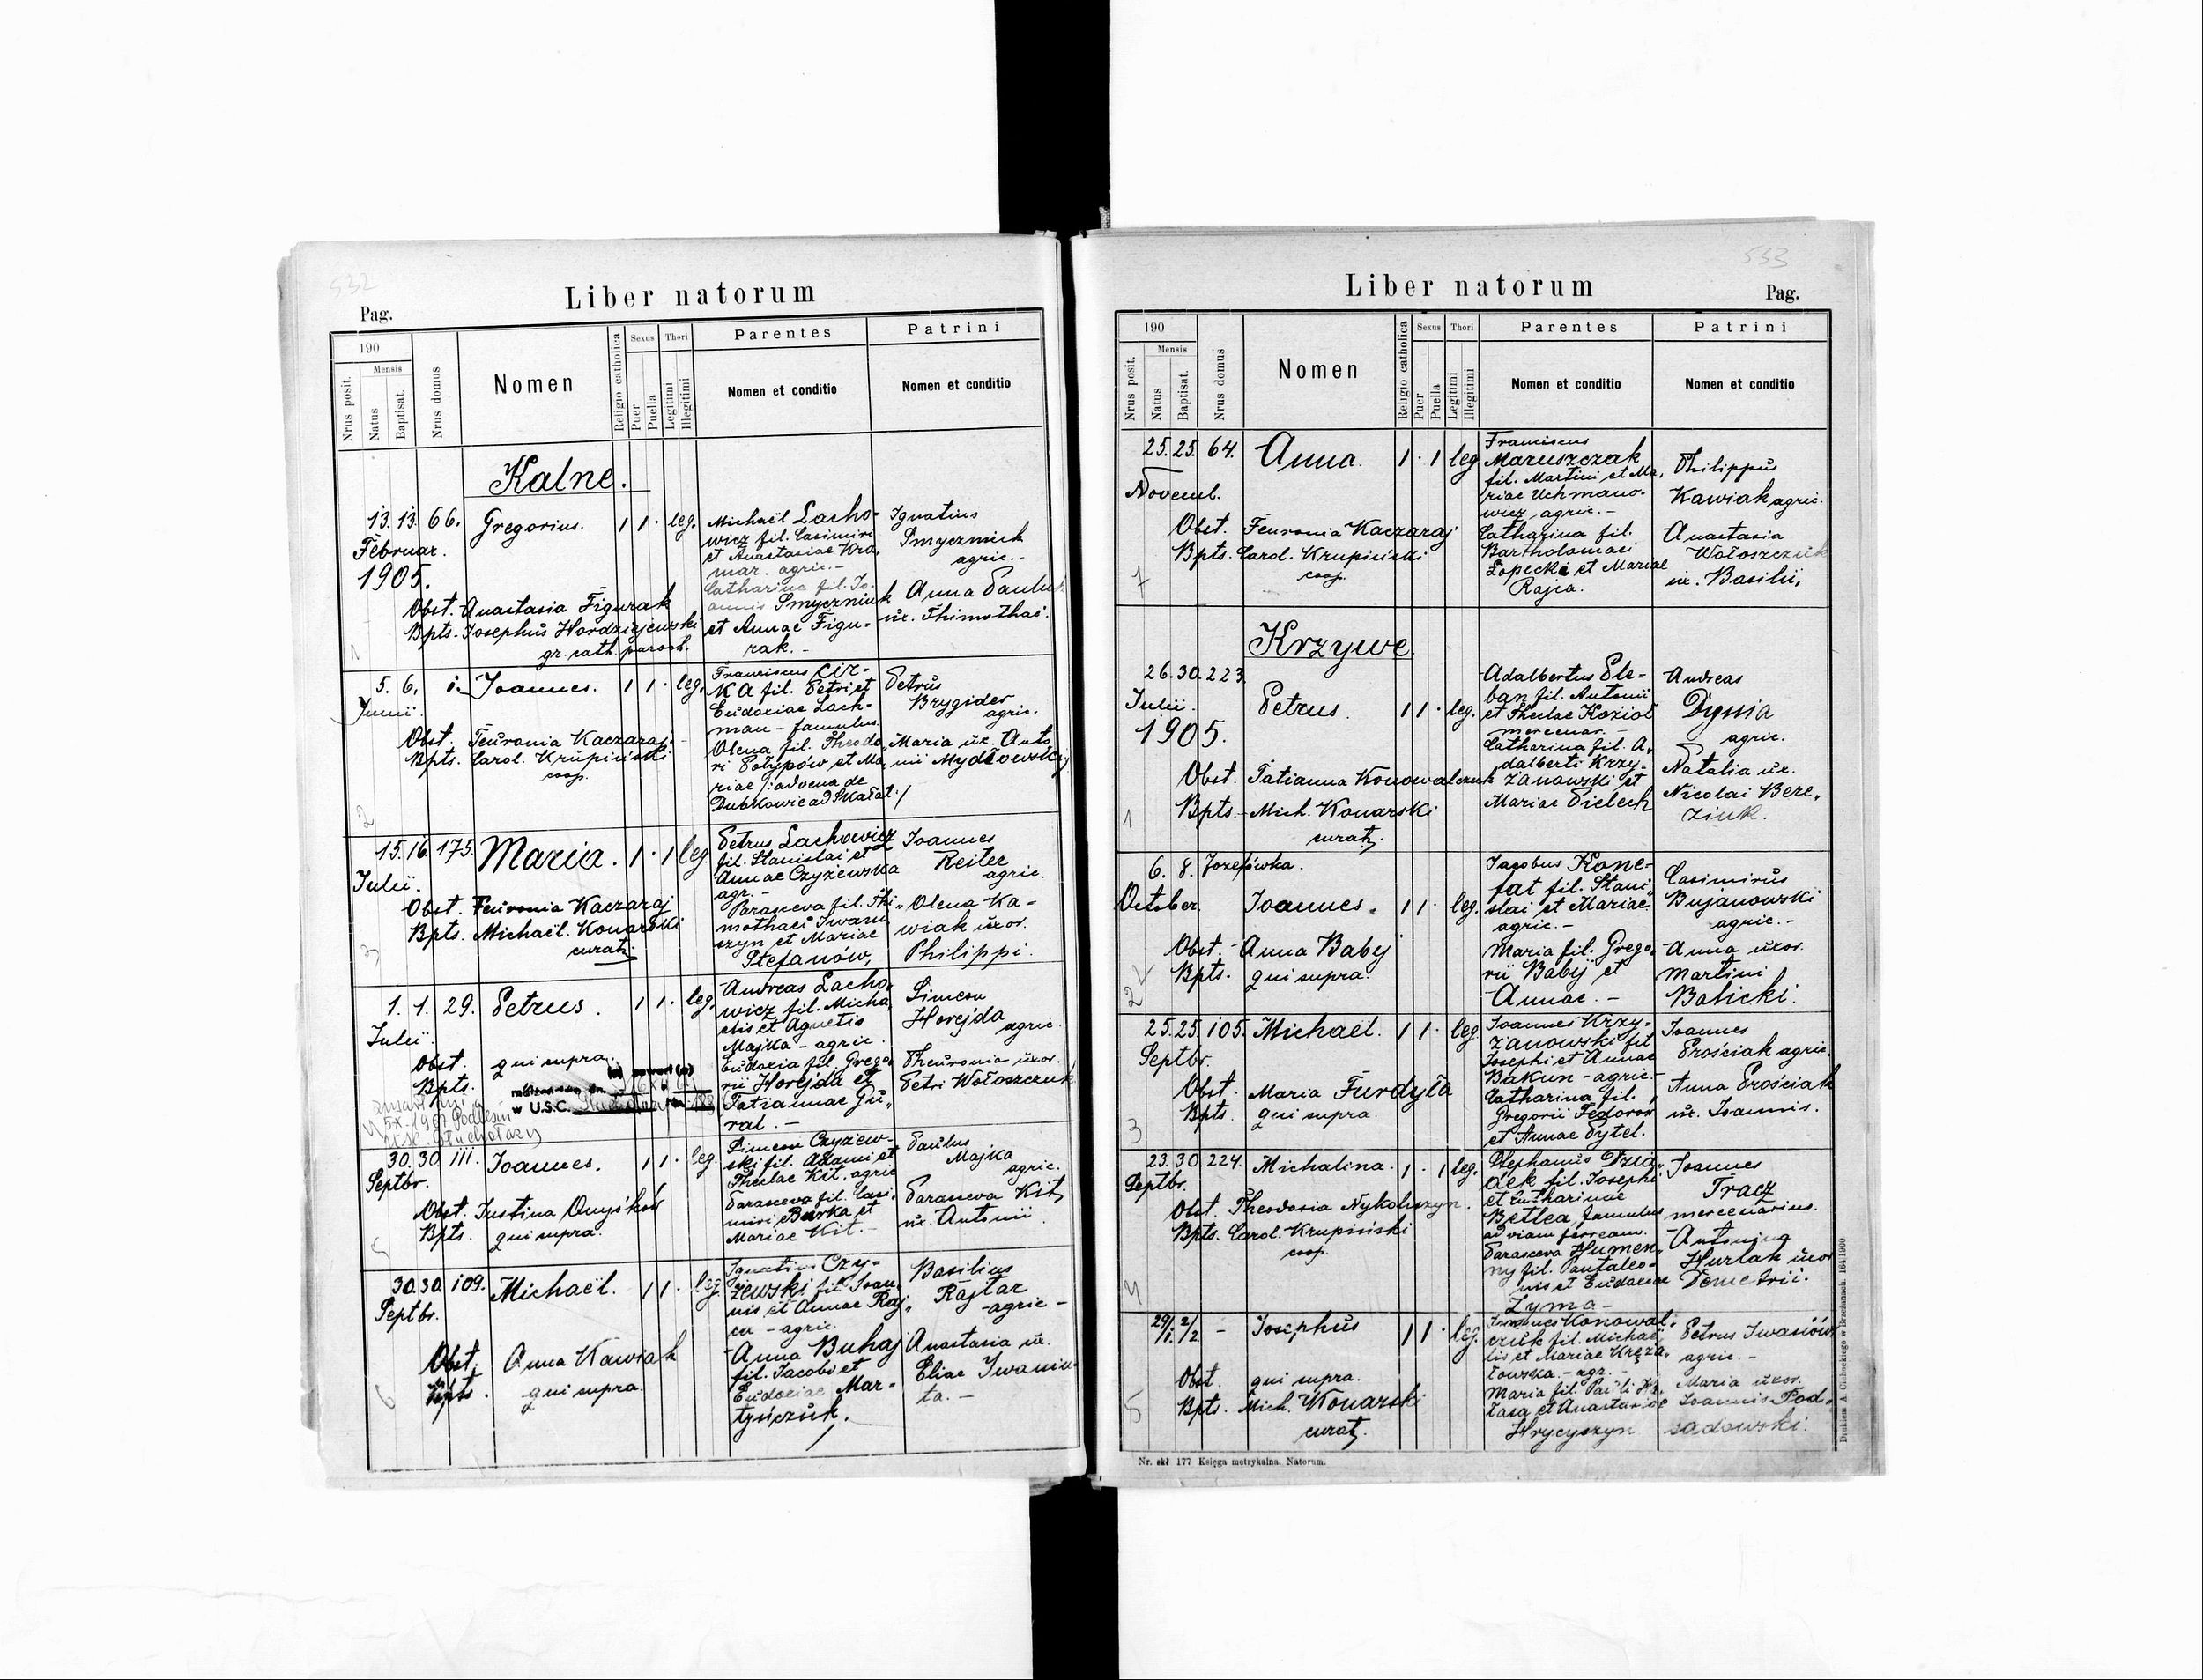 532
Liber natorum
Pag.
190
Nrus posit.
Mensis
Natus
Baptisat.
Nrus domus
Nomen
Religio catholica
Sexus
Puer
Puella
Thori
Legitimi
Illegitimi
Parentes
Nomen et conditio
Patrini
Nomen et conditio
Kalne.
13. 13. 66. Gregorius. 1 1 · leg.
Februar.
1905.
Obst. Anastasia Figurak
Bpts. Josephus Hordziejewski
gr. cath. paroch.
1
Michaël Lacho-
wicz fil. Casimiri
et Anastasiae Kra,
mar. agric.-
Catharina fil. Jo,
annis Smyczniuk
et Annae Figu-
rak.-
Ignatius
Smyczniuk
agric.-
Anna Pauluk
ux. Thimothaei.
5. 6. 1. Joannes. 1 1 · leg.
Junii.
Obst. Feuronia Kaczaraj.
Bpts. Carol. Krupiński
coop.
2
Franciscus Cir-
Ka fil. Petri et
Eudoxiae Lach-
man - famulus.
Olena fil. Theodo,
ri Potypów et Ma,
riae /:advena de
Dubkowie ad Skałat:/
Petrus
Brygider
agric.
Maria ux. Anto,
nii Mydłowski
15. 16. 175. Maria. 1 · 1 leg.
Julii.
Obst. Feuronia Kaczaraj
Bpts. Michaël. Konarski
curat.
3
Petrus Lachowicz
fil. Stanislai et
Annae Czyżewska
agr.-
Parasceva fil. Thi,
mothaei Iwani
szyn et Mariae
Stefanów,
Joannes
Reiter
agric.
Olena Ka-
wiak uxor.
Philippi.
1. 1. 29. Petrus. 1 1 · leg.
Julii.
Obst. qui supra.
Bpts.
w U.S.C.
5X.1967
4
Andreas Lacho,
wicz fil. Micha,
elis et Agnetis
Majka - agric.
Eudoxia fil. Grego,
rii Horejda et
Tatiannae Gu,
ral.-
Simeon
Horejda
agric.
Theuronia uxor.
Petri Wołoszczuk
30. 30. 111. Joannes. 1 1 · leg.
Septbr.
Obst. Justina Onyśków
Bpts. qui supra.
5
Simeon Czyżew-
ski fil. Adami et
Theclae Kit, agric
Parasceva fil. Casi,
miri Burka et
Mariae Kit.-
Paulus
Majka
agric.
Parasceva Kit
ux. Antonii.
30. 30. 109. Michaël. 1 1 · leg.
Septbr.
Obst. Anna Kawiak
Bpts. qui supra.
6
Ignatius Czy-
żewski fil. Joan,
nis et Annae Raj,
ca - agric.
Anna Buhaj
fil. Jacobi et
Eudoxiae Mar-
tyńczuk.
Basilius
Rajtar
-agric-
Anastasia ux.
Eliae Iwaniu-
ta.-
533
Liber natorum
Pag.
190
Nrus posit.
Mensis
Natus
Baptisat.
Nrus domus
Nomen
Religio catholica
Sexus
Puer
Puella
Thori
Legitimi
Illegitimi
Parentes
Nomen et conditio
Patrini
Nomen et conditio
25. 25. 64. Anna. 1 · 1 leg
Novemb.
Obst. Feuronia Kaczaraj
Bpts. Carol. Krupiński
coop.
7
Franciscus
Maruszczak
fil. Martini et Ma,
riae Uchmano-
wicz, agric.-
Catharina fil.
Bartholomaei
Łopecki et Mariae
Rajca.
Philippus
Kawiak agric.
Anastasia
Wołoszczuk
ux. Basilii,
Krzywe.
26. 30. 223. Petrus. 1 1 · leg.
Julii.
1905.
Obst. Tatianna Konowalczuk
Bpts.- Mich. Konarski
curat.
1
Adalbertus Ple-
ban fil. Antonii
et Theclae Kozioł
mercenar.-
Catharina fil. A,
dalberti Krzy-
żanowski et
Mariae Pielech
Andreas
Dyssia
agric.
Natalia ux.
Nicolai Bere,
ziuk.
6. 8. Jozefówka.
October. Joannes. 1 1 · leg.
Obst. Anna Baby
Bpts. qui supra.
2
Jacobus Kone-
fat fil. Stani,
slai et Mariae
agric.-
Maria fil. Grego,
rii Baby et
Annae.-
Casimirus
Bujanowski
agric.-
Anna uxor.
Martini
Baticki.
25. 25. 105. Michaël. 1 1 · leg
Septbr.
Obst. Maria Furdyła
Bpts. qui supra.
3
Joannes Krzy-
żanowski fil
Josephi et Annae
Bakun - agric.-
Catharina fil.
Gregorii Fedorow
et Annae Pytel.
Joannes
Prościak agric.
Anna Prościak
ux. Joannis.
23. 30 224. Michalina. 1 · 1 leg.
Septbr.
Obst. Theodosia Nykoliszyn.
Bpts. Carol. Krupiński
coop.
4
Stephanus Dzia,
dek fil. Josephi
et Catharinae
Betlea, famulus
ad viam ferream.
Parasceva Humen,
ny fil. Pantaleo-
nis et Eudoxiae
Zyma-
Joannes
Tracz
mercenarius.
Antonina
Hurlak uxor
Demetrii.
29/1. 2/2 - Josephus 1 1 · leg.
Obst. qui supra.
Bpts. Mich. Konarski
curat.
5
Konowal,
czuk fil. Michaë,
lis et Mariae Kręża,
łowska.- agr.-
Maria fil. Pauli
et Anastasiae
Hrycyszyn
Petrus Iwasiów
agric.-
Maria uxor.
Joannis Pod,
sadowski.
Nr. skł 177 Księga metrykalna. Natorum.
Drukiem A. Cichockiego w Brzeżanach. 164/1900